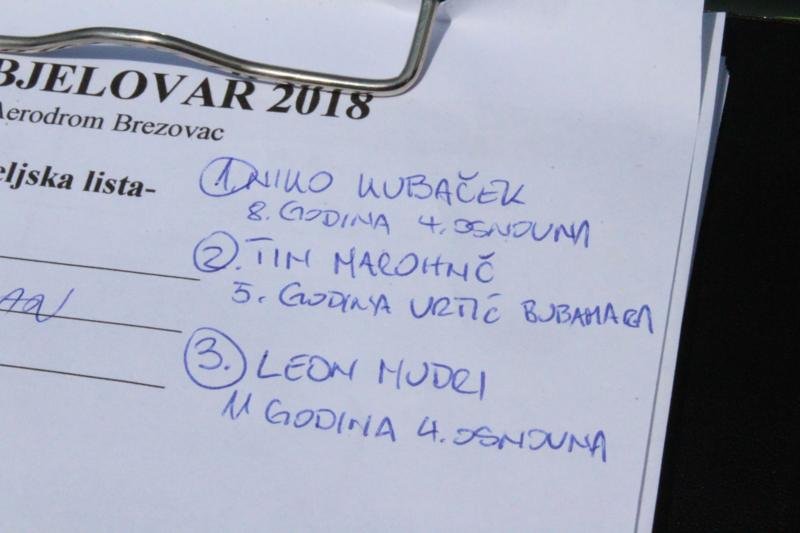 BJELOVAR 2018
Aerodrom Brezovac
eljska lista-
1. NIKO KUBAČEK
8. GODINA 4. OSNOVNA
2. TIN MAROHNIČ
5. GODINA VRTIĆ BUBAMARA
3. LEON MUDRI
11 GODINA 4. OSNOVNA